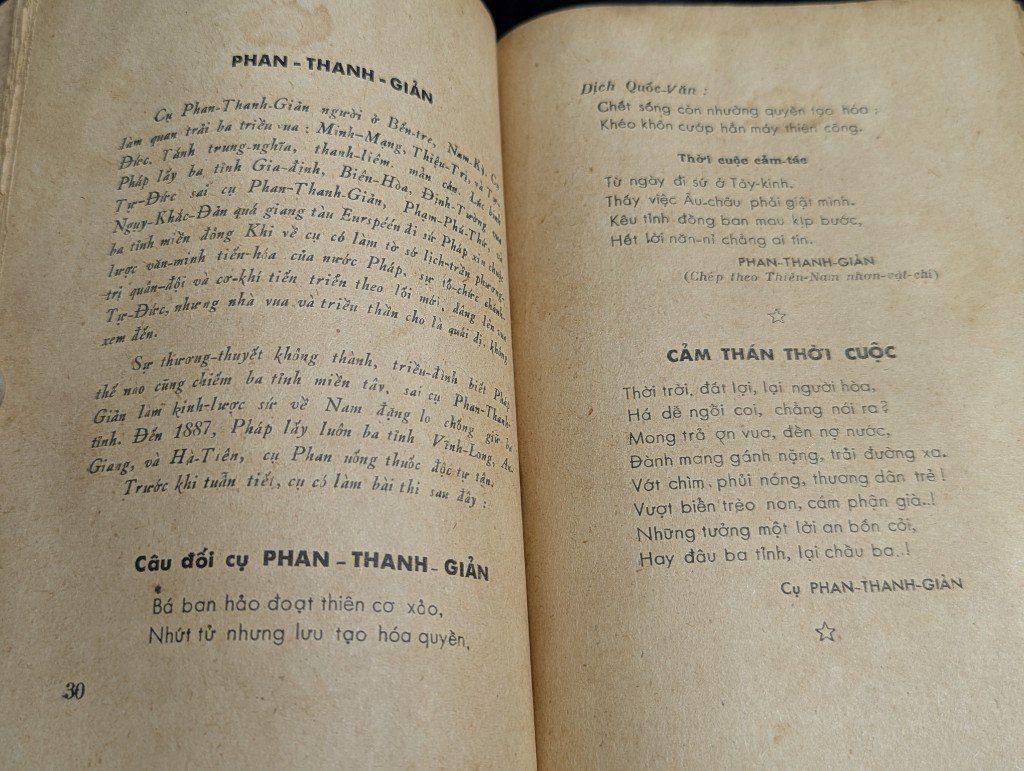 PHAN - THANH - GIẢN
Cụ Phan-Thanh-Giản người ở Bến-tre, Nam-Kỳ. Cụ
làm quan trải ba triều vua : Minh-Mạng, Thiệu-Trị, và Tự-
Đức. Tánh trung-nghĩa, thanh-liêm, mẫn cán. Lúc binh
Pháp lấy ba tỉnh Gia-định, Biên-Hòa, Định-Tường, vua
Tự-Đức sai cụ Phan-Thanh-Giản, Phạm-Phú-Thứ, và
Nguy-Khắc-Đản quá giang tàu Eurspéén đi sứ Pháp xin chuộc
ba tỉnh miền đông Khi về cụ có làm tờ sớ lịch-trần phương-
lược văn-minh tiến-hóa của nước Pháp, sự tổ-chức chánh-
trị quân-đội và cơ-khí tiến triển theo lối mới, dâng lên vua
Tự-Đức, nhưng nhà vua và triều thần cho là quái dị, không
xem đến.
Sự thương-thuyết không thành, triều-đình biết Pháp
thế nào cũng chiếm ba tỉnh miền tây, sai cụ Phan-Thanh-
Giản làm kinh-lược sứ về Nam đặng lo chống giữ ba
tỉnh. Đến 1887, Pháp lấy luôn ba tỉnh Vĩnh-Long, An-
Giang, và Hà-Tiên, cụ Phan uống thuốc độc tự tận.
Trước khi tuẫn tiết, cụ có làm bài thi sau đây :
Câu đối cụ PHAN - THANH - GIẢN
Bá ban hảo đoạt thiên cơ xảo,
Nhứt tử nhưng lưu tạo hóa quyền,
30
Dịch Quốc-Văn :
Chết sống còn nhường quyền tạo hóa ;
Khéo khôn cướp hẳn máy thiên công.
Thời cuộc cảm-tác
Từ ngày đi sứ ở Tây-kinh.
Thấy việc Âu-châu phải giật mình.
Kêu tỉnh đồng ban mau kịp bước,
Hết lời năn-nỉ chẳng ai tin.
PHAN-THANH-GIẢN
(Chép theo Thiên-Nam nhơn-vật-chí)
CẢM THÁN THỜI CUỘC
Thời trời, đất lợi, lại người hòa,
Há dễ ngồi coi, chẳng nói ra?
Mong trả ơn vua, đền nợ nước,
Đành mang gánh nặng, trải đường xa.
Vớt chìm, phủi nóng, thương dân trẻ !
Vượt biển trèo non, cám phận già..!
Những tưởng một lời an bốn cỏi,
Hay đâu ba tỉnh, lại chầu ba..!
Cụ PHAN-THANH-GIẢN